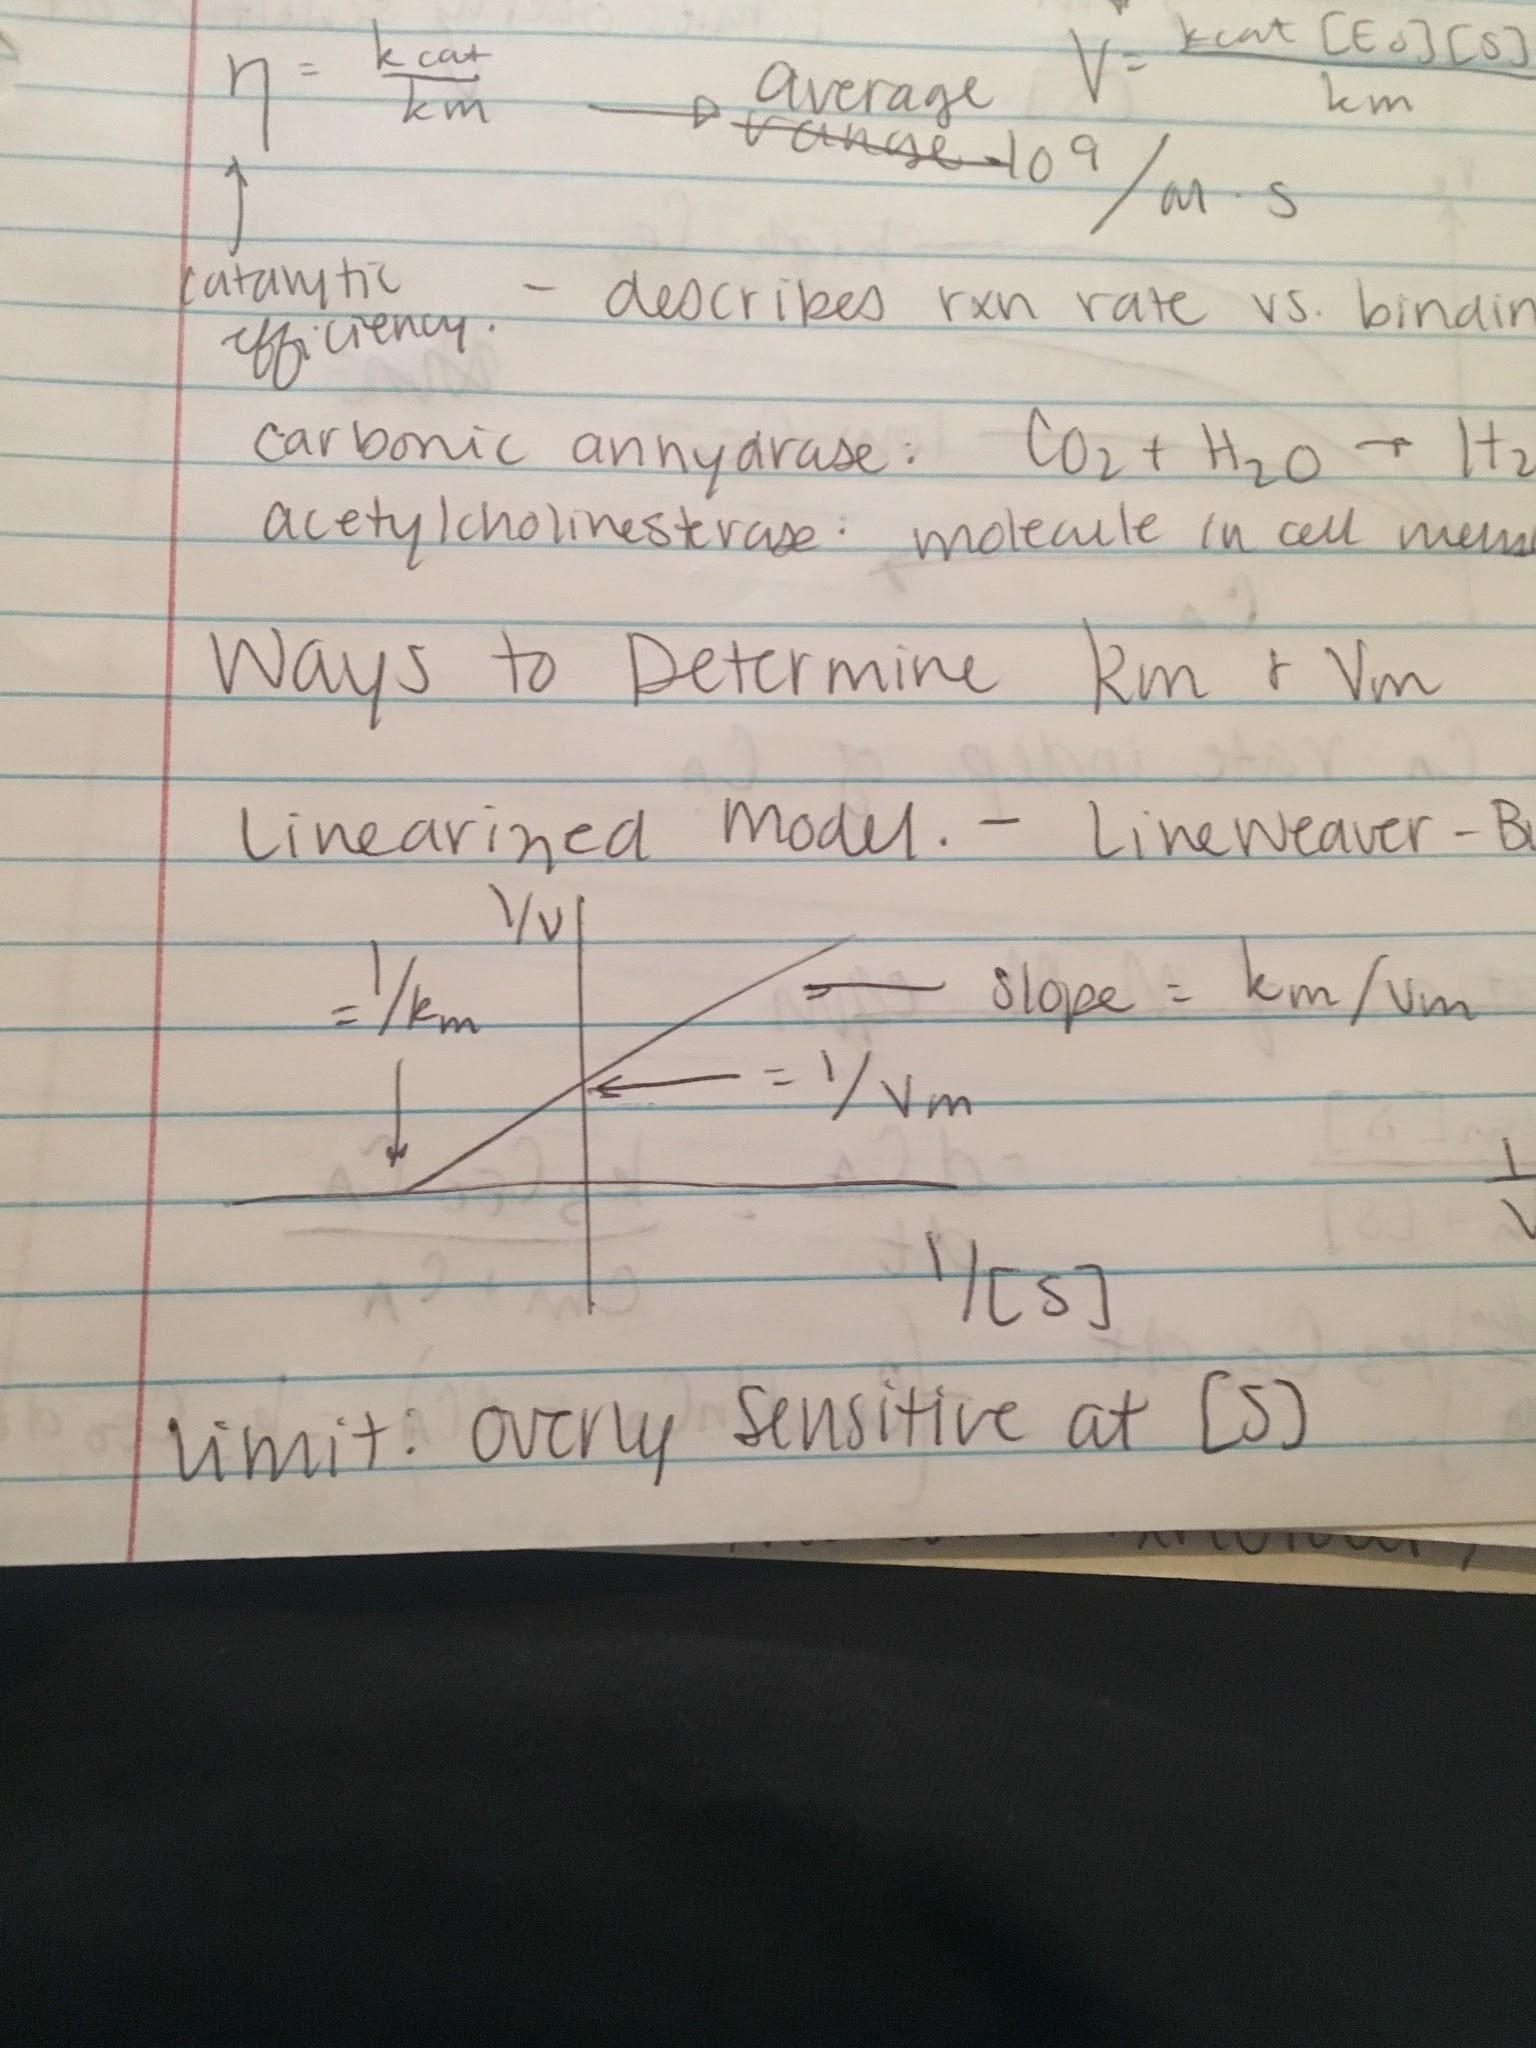 η = kcat/km → average V = kcat [Eo][S]/km
range 10^9/M·s
catalytic efficiency. - describes rxn rate vs. bindin
carbonic anhydrase: CO2 + H2O → H2
acetylcholinesterase: molecule in cell mem
Ways to Determine km + Vm
Linearized Model. - LineWeaver-Bu
1/V
= 1/km
slope = km/Vm
= 1/Vm
1/V
1/[S]
Limit: overly sensitive at [S]